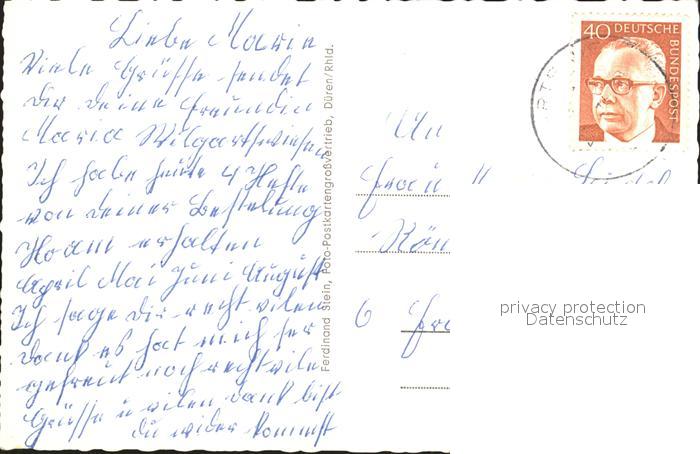 Liebe Maria
Viele Grüsse sendet
dir deine Freundin
Maria
Ich habe heute 4 Hefte
von deiner Bestelung
Hoam erhalten
April Mai Juni August
Ich sage dir recht vilen
Dank es hat mich ser
gefreut noch recht vile
Grüsse u vilen dank bist
du wider kommst
Ferdinand Stein, Foto-Postkartengroßvertrieb, Düren/Rhld.
40 DEUTSCHE
BUNDESPOST
An
Frau
Kön
6 Fr
privacy protection
Datenschutz